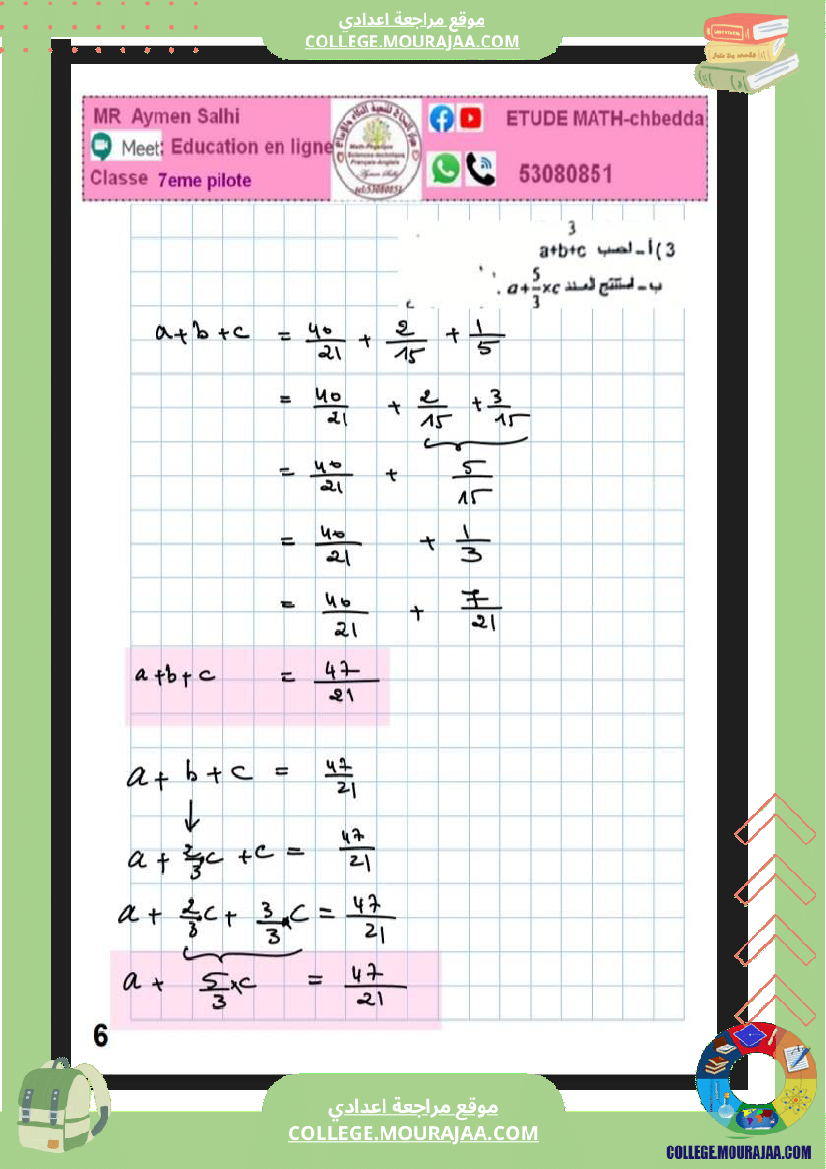 موقع مراجعة اعدادي
COLLEGE.MOURAJAA.COM
MR Aymen Salhi
Meet: Education en ligne
Classe 7eme pilote
ETUDE MATH-chbedda
53080851
3
3) أ - احسب a+b+c
ب - استنتج العدد a + 5/3 × c .
a+b+c = 40/21 + 2/15 + 1/5
= 40/21 + 2/15 + 3/15
= 40/21 + 5/15
= 40/21 + 1/3
= 40/21 + 7/21
a+b+c = 47/21
a + b + c = 47/21
a + 2/3 × c + c = 47/21
a + 2/3 × c + 3/3 × c = 47/21
a + 5/3 × c = 47/21
6
موقع مراجعة اعدادي
COLLEGE.MOURAJAA.COM
COLLEGE.MOURAJAA.COM